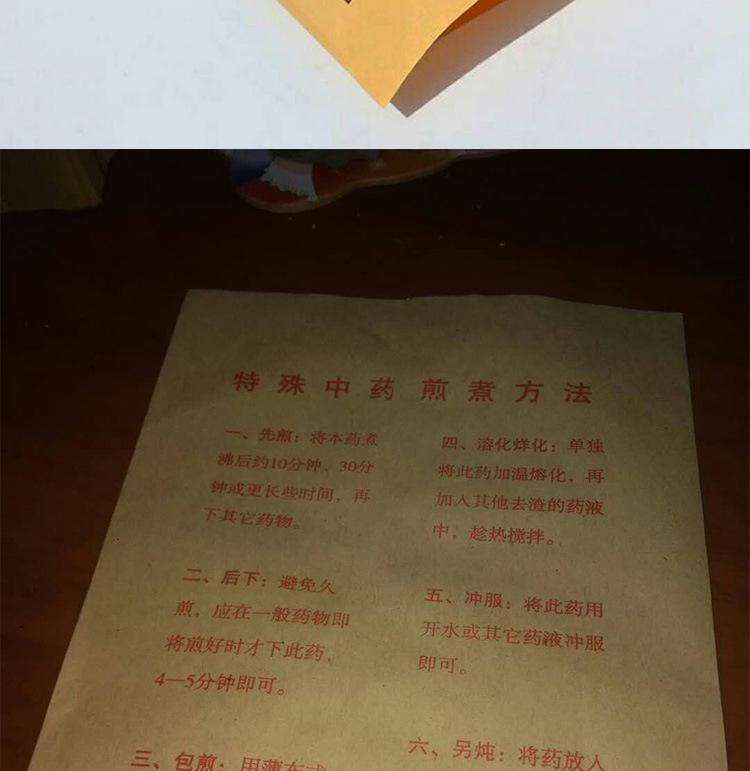 特殊中药煎煮方法
一、先煎：将本药煮
沸后约10分钟、30分
钟或更长些时间，再
下其它药物。
二、后下：避免久
煎，应在一般药物即
将煎好时才下此药，
4—5分钟即可。
三、包煎：用薄布或
四、溶化烊化：单独
将此药加温熔化，再
加入其他去渣的药液
中，趁热搅拌。
五、冲服：将此药用
开水或其它药液冲服
即可。
六、另炖：将药放入